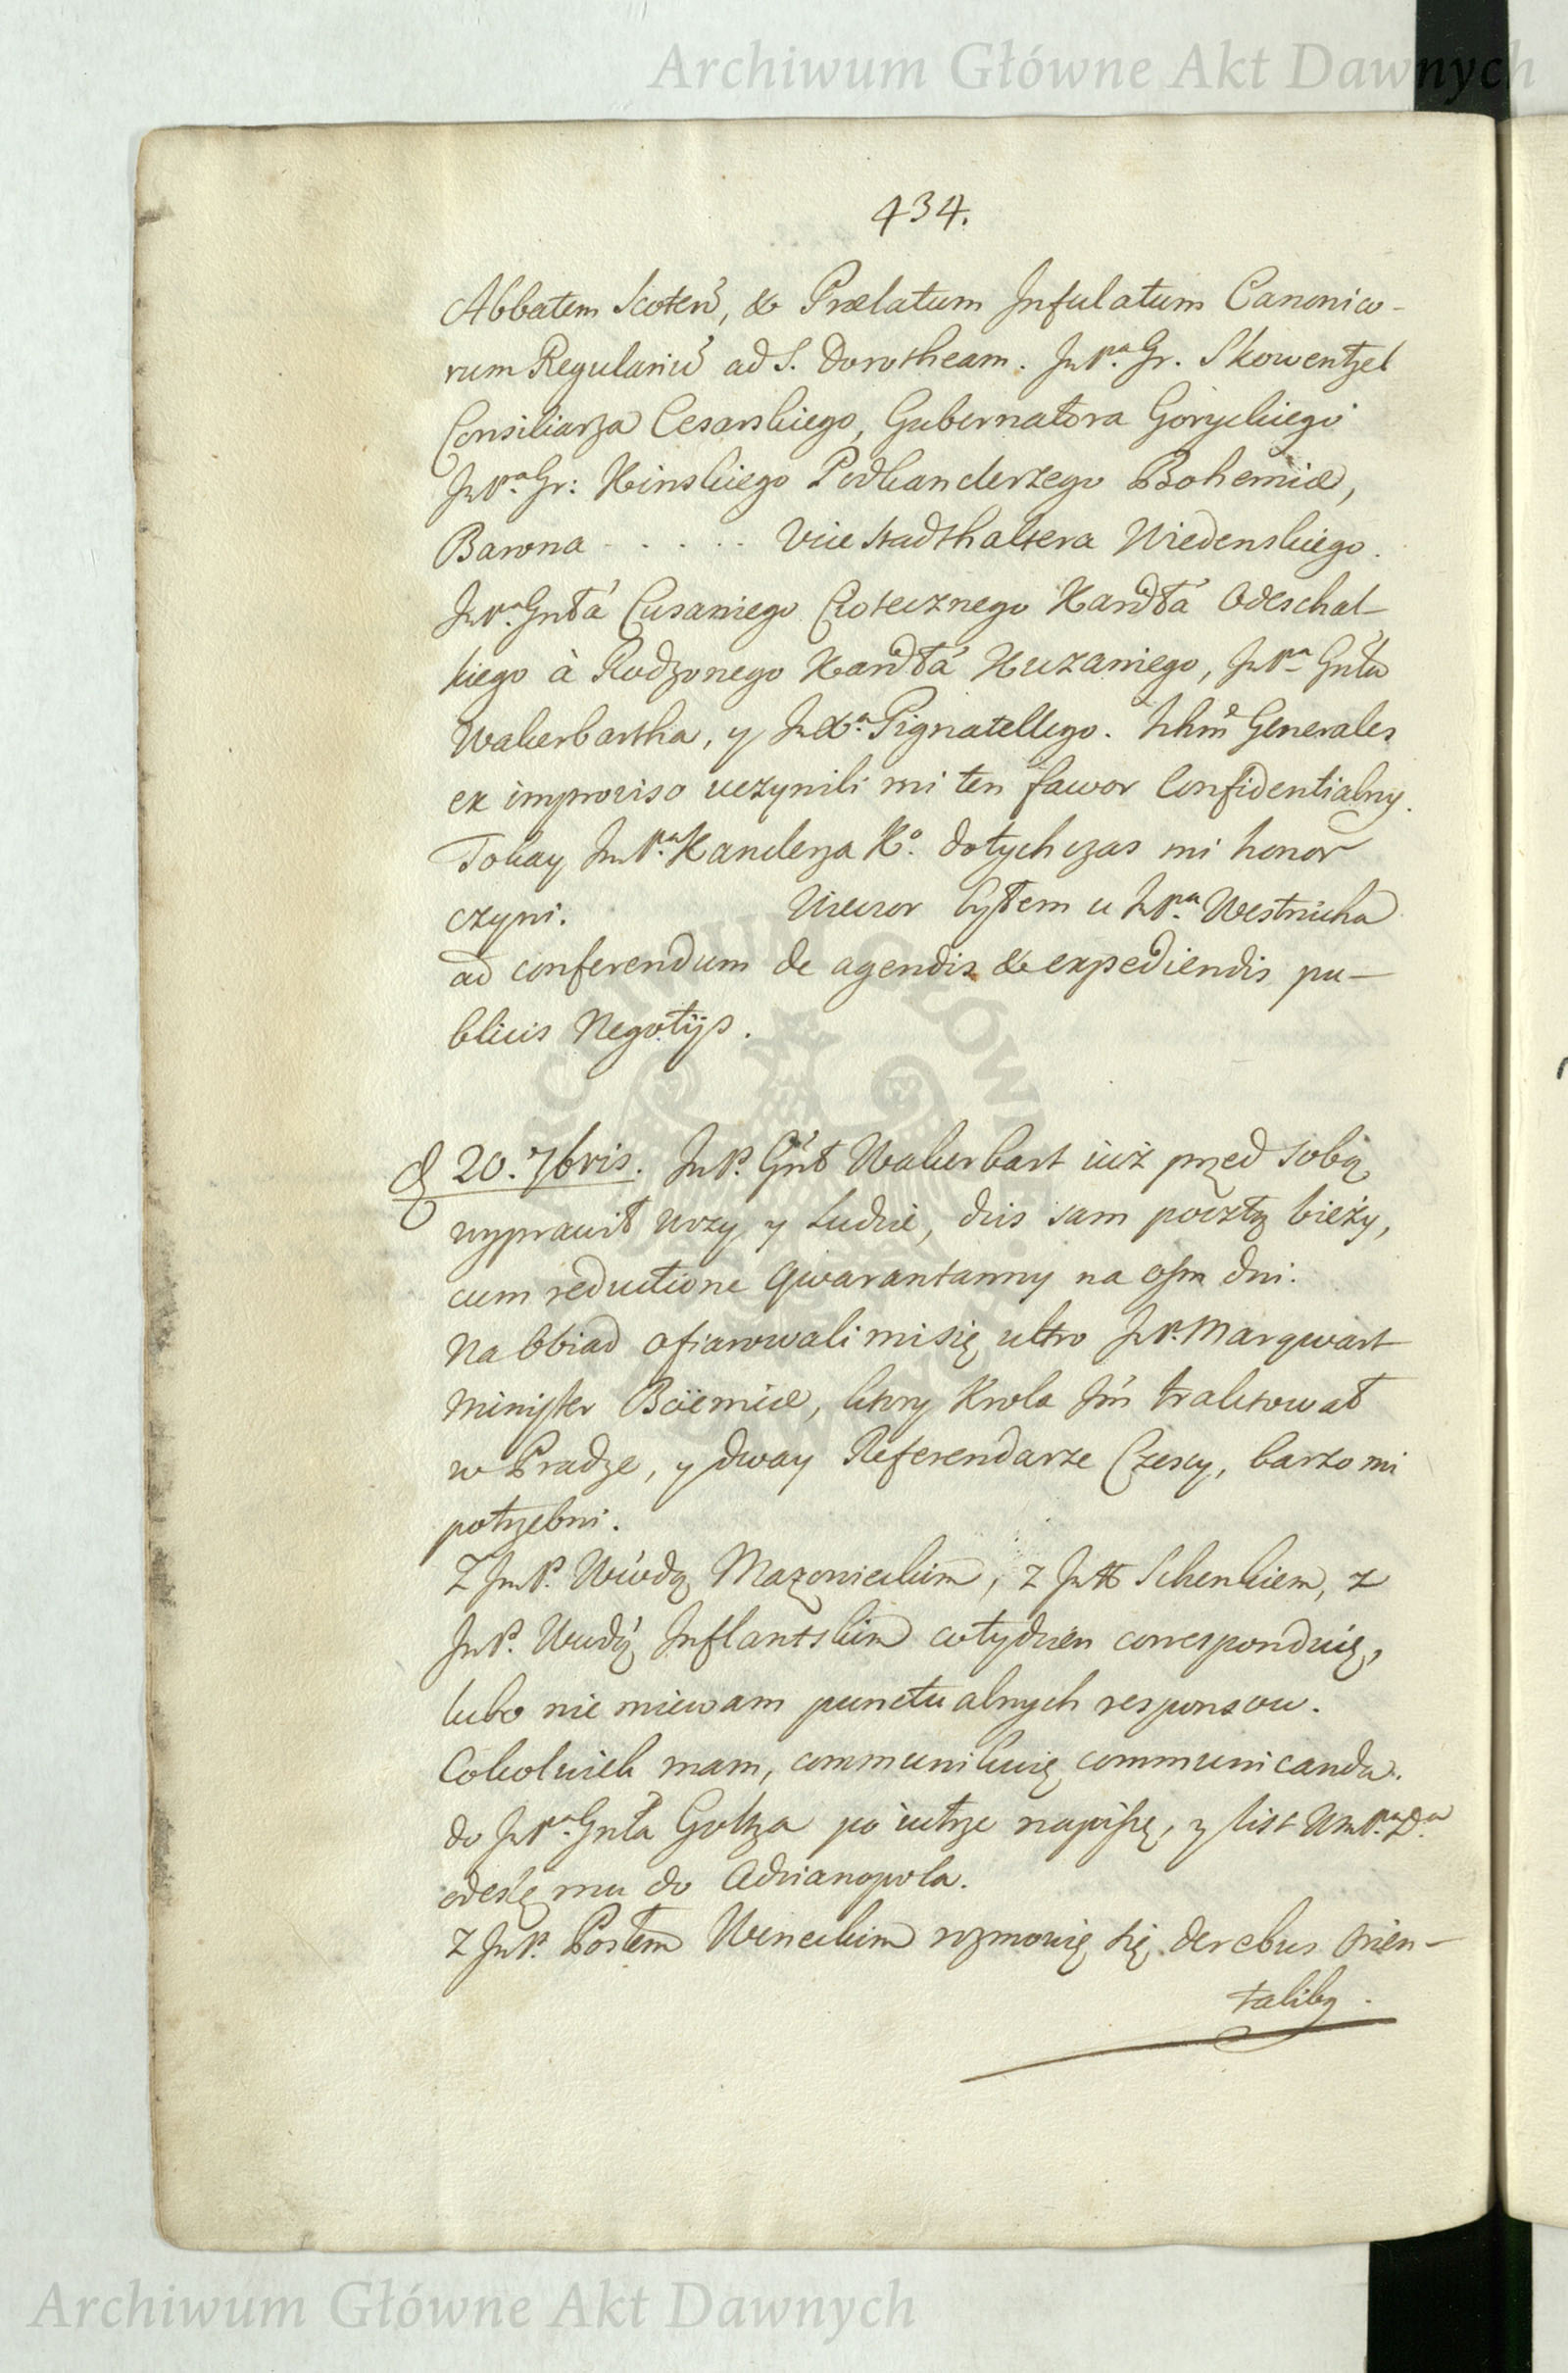 Archiwum Główne Akt Dawnych
434.
Abbatem Scoteñ, & Prælatum Infulatum Canonico-
rum Regulariũ ad S. Dorotheam. JmPa. Gr. Skowentzel
Consiliarza Cesarskiego, Gubernatora Goryckiego
JmPa. Gr: Kinskiego Podkanclerzego Bohemiæ,
Barona . . . . . Vice Stadthaltera Wiedenskiego.
JmPa. Gnłá Cusaniego Ciotecznego Kardłá Odeschal-
kiego à Rodzonego Kardłá Kuzaniego, JmPa Gnła
Wakerbartha, y JmXa. Pignatellego. Generales
ex improviso uczynili mi ten fawor Confidentialny.
Tokay JmPa. Kanclerza Ko. dotychczas mi honor
czyni. Wieczor byłem u JmPa. Westnicha
ad conferendum de agendis & expediendis pu-
blicis Negotijs.
d 20. 7bris. JmP. Gnł Wakerbart iuż przed sobą
wyprawił wozy y Ludzie, dzis sam pocztą bieży,
cum reductione Qwarantanny na osm dni.
Na Obiad ofiarowali mi się ultro JmP. Marqwart
Minister Boëmiæ, ktory Krola Jm traktował
w Pradze, y dway Referendarze Czescy, barzo mi
potrzebni.
Z JmP. Wwdą Mazowieckim, z Schenkiem, z
JmP. Wwdą Inflantskim co tydzien corresponduię,
lubo nie miewam punctualnych responsow.
Cokolwiek mam, communikuię communicanda.
do JmPa. Gnła Goltza po iutrze napiszę, y list WmPa. Da.
odeslę mu do Adrianopola.
Z JmP. Posłem Weneckim rozmowię się de rebus orien-
talibq.
Archiwum Główne Akt Dawnych